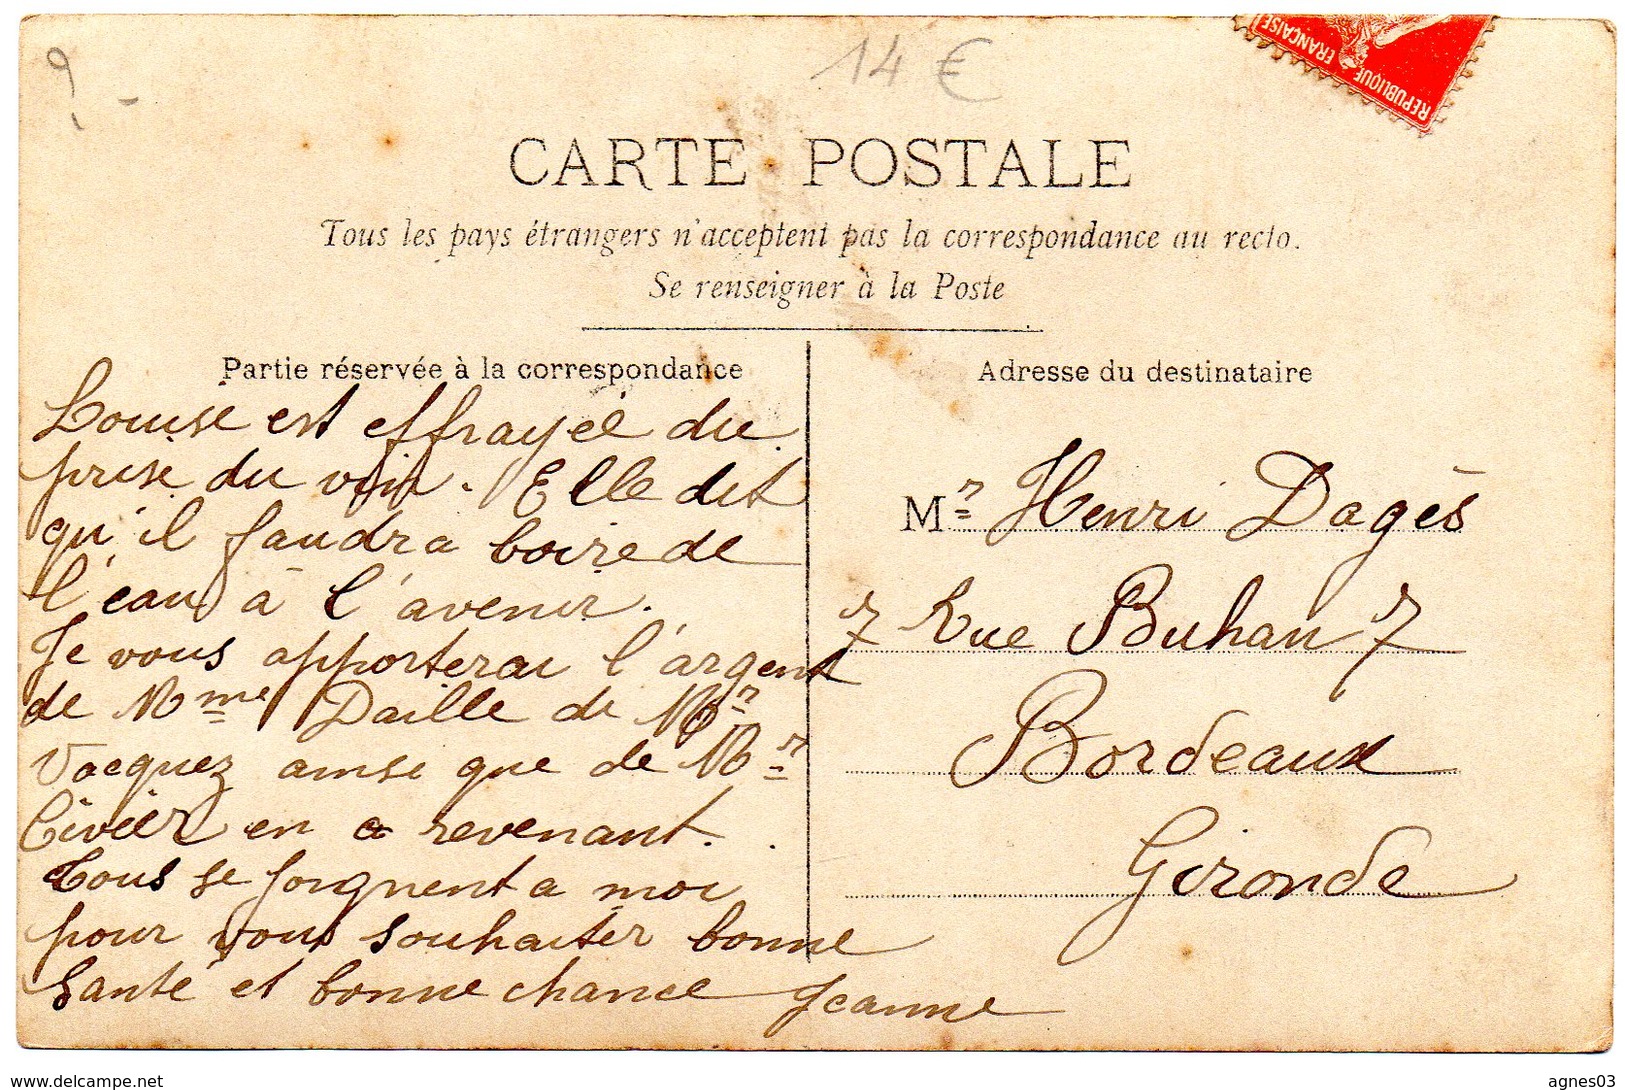 14 €
RÉPUBLIQUE FRANÇAISE
CARTE POSTALE
Tous les pays étrangers n'acceptent pas la correspondance au recto.
Se renseigner à la Poste
Partie réservée à la correspondance
Louise est effrayée du
prise du vin. Elle dit
qu'il faudra boire de
l'eau à l'avenir.
Je vous apporterai l'argent
de Mme Daille de Mr
Vacquez ainse que de Mr
Civiér en revenant.
Tous se joignent a moi
pour vous souhaiter bonne
Santé et bonne chance Jeanne
Adresse du destinataire
Mr Henri Dagès
7 Rue Buhan 7
Bordeaux
Gironde
www.delcampe.net
agnes03